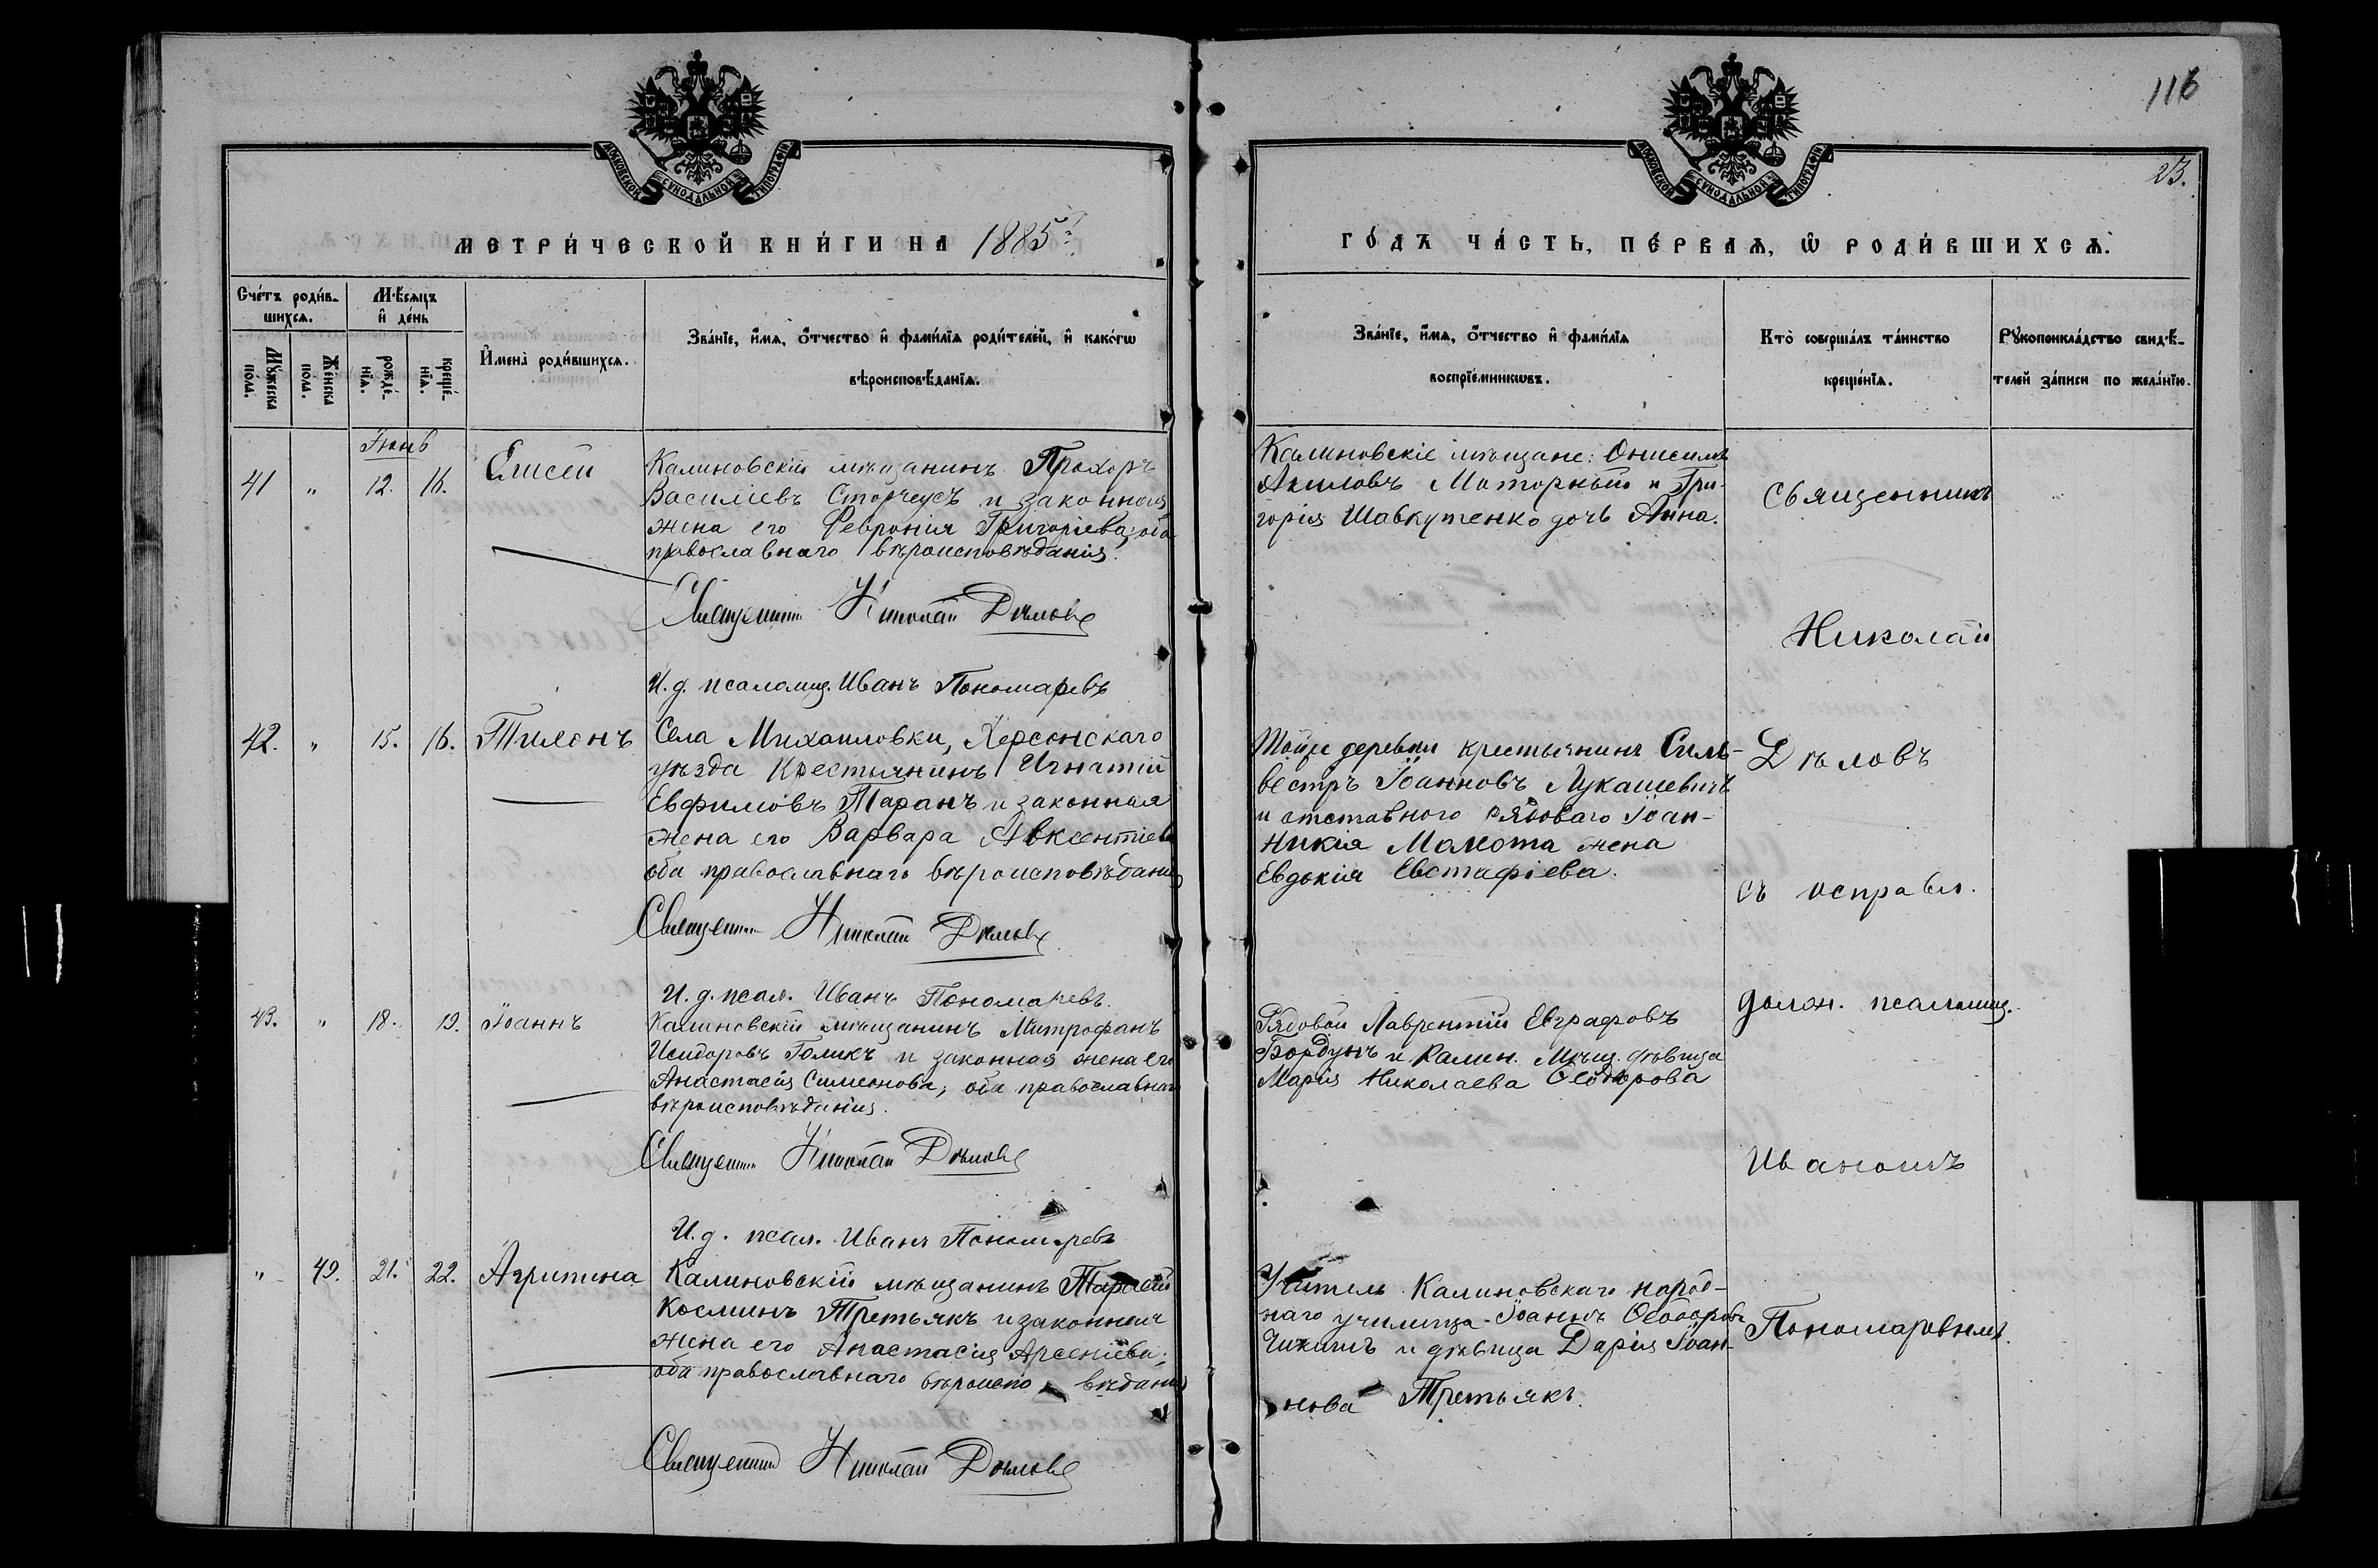 116
23.
МОСКОВСКОЙ СѴНОДАЛЬНОЙ ТИПОГРАФІИ
МОСКОВСКОЙ СѴНОДАЛЬНОЙ ТИПОГРАФІИ
МЕТРИ́ЧЕСКОЙ КНИ́ГИ НА 1885 г.
ГО́ДЪ ЧА́СТЬ, ПЕ́РВАѦ, Ѡ РОДИ́ВШИХСѦ.
Сче́тъ роди́в-
шихсѧ.
Мѣ́сѧцъ
и҆ де́нь
Мꙋ́жеска
по́ла.
Же́нска
по́ла.
рожде́-
нїѧ.
креще́-
нїѧ.
И҆мена̀ роди́вшихсѧ.
Зва́нїе, и҆́мѧ, ѻ҆́тчество и҆ фами́лїѧ роди́телей, и҆ како́гѡ
вѣроисповѣ́данїѧ.
Зва́нїе, и҆́мѧ, ѻ҆́тчество и҆ фами́лїѧ
воспрїе́мникѡвъ.
Кто̀ соверша́лъ та́инство
креще́нїѧ.
Рꙋкоприкла́дство свидѣ́-
телей за́писи по жела́нїю.
Іюнь
41 " 12. 16. Елисей
Калиновскій мѣщанинъ Прохоръ
Василіевъ Сторчеусъ и законная
жена его Февронія Григоріева; оба
православнаго вѣроисповѣданія.
Священникъ Николай Дѣловъ
И. д. псаломщ. Иванъ Пономаревъ
Калиновскіе мѣщане: Онисимъ
Акиловъ Моторный и Гри-
горія Шавкутенко дочь Анна.
Священникъ
Николай
Дѣловъ
съ исправл.
долж. псаломщ.
Иваномъ
Пономаревымъ.
42. " 15. 16. Тихонъ
Села Михаиловки, Херсонскаго
уѣзда Крестьянинъ Игнатій
Евфимовъ Таранъ и законная
жена его Варвара Авксентіева
оба православнаго вѣроисповѣданія
Священникъ Николай Дѣловъ
И. д. псал. Иванъ Пономаревъ.
Тойже деревни крестьянинъ Силь-
вестръ Іоанновъ Лукашевичъ
и отставного рядоваго Іоан-
никія Малюта жена
Евдокія Евстафіева.
43. " 18. 19. Іоаннъ
Калиновскій мѣщанинъ Митрофанъ
Исидоровъ Голикъ и законная жена его
Анастасія Симеонова; оба православнаго
вѣроисповѣданія.
Священникъ Николай Дѣловъ
И. д. псал. Иванъ Пономаревъ
Рядовой Лаврентій Евграфовъ
Бордунъ и Калин. Мѣщ. дѣвица
Марія Николаева Ѳеодорова
" 49. 21. 22. Агрипина
Калиновскій мѣщанинъ Тарасій
Косминъ Третьякъ и законная
жена его Анастасія Арсеніева;
оба православнаго вѣроиспо вѣданія
Священникъ Николай Дѣловъ
Учитель Калиновскаго народ-
наго училища Іоаннъ Ѳеодоровъ
и дѣвица Дарія Іоан-
нова Третьякъ.